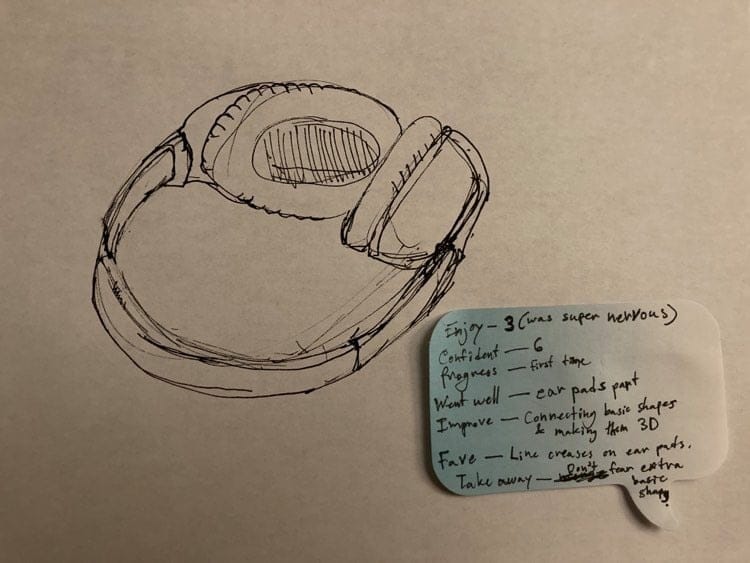 Enjoy – 3 (was super nervous)
Confident — 6
Progress — First time
Went well — ear pads part
Improve — Connecting basic shapes
& making them 3D
Fave — Line creases on ear pads.
Take away — Don't fear extra
basic
shapes